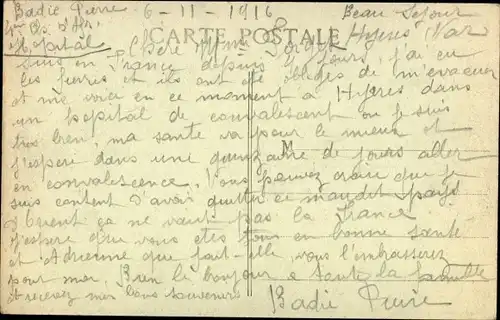 Badie Pierre 6-11-1916 Beau Sejour
Hopital Hyeres Var
CARTE POSTALE
Chère Mme
Suis en France depuis jours, j'ai eu
les fievres et ils ont été obligés de m'evacuer
et me voici en ce moment a Hyeres dans
un hopital de convalescent ou je suis
tres bien, ma sante va pour le mieux et
M
j'espere dans une quinzaine de jours aller
en convalescence. Vous pouvez croire que je
suis content d'avoir quitter ce maudit pays
d'Orient ça ne vaut pas la France
J'espere que vous etes tous en bonne sante
et Adrienne que fait-elle, vous l'embrasserez
pour moi, Bien le bonjour a toute la famille
et recevez mes bons souvenirs
Badie Pierre